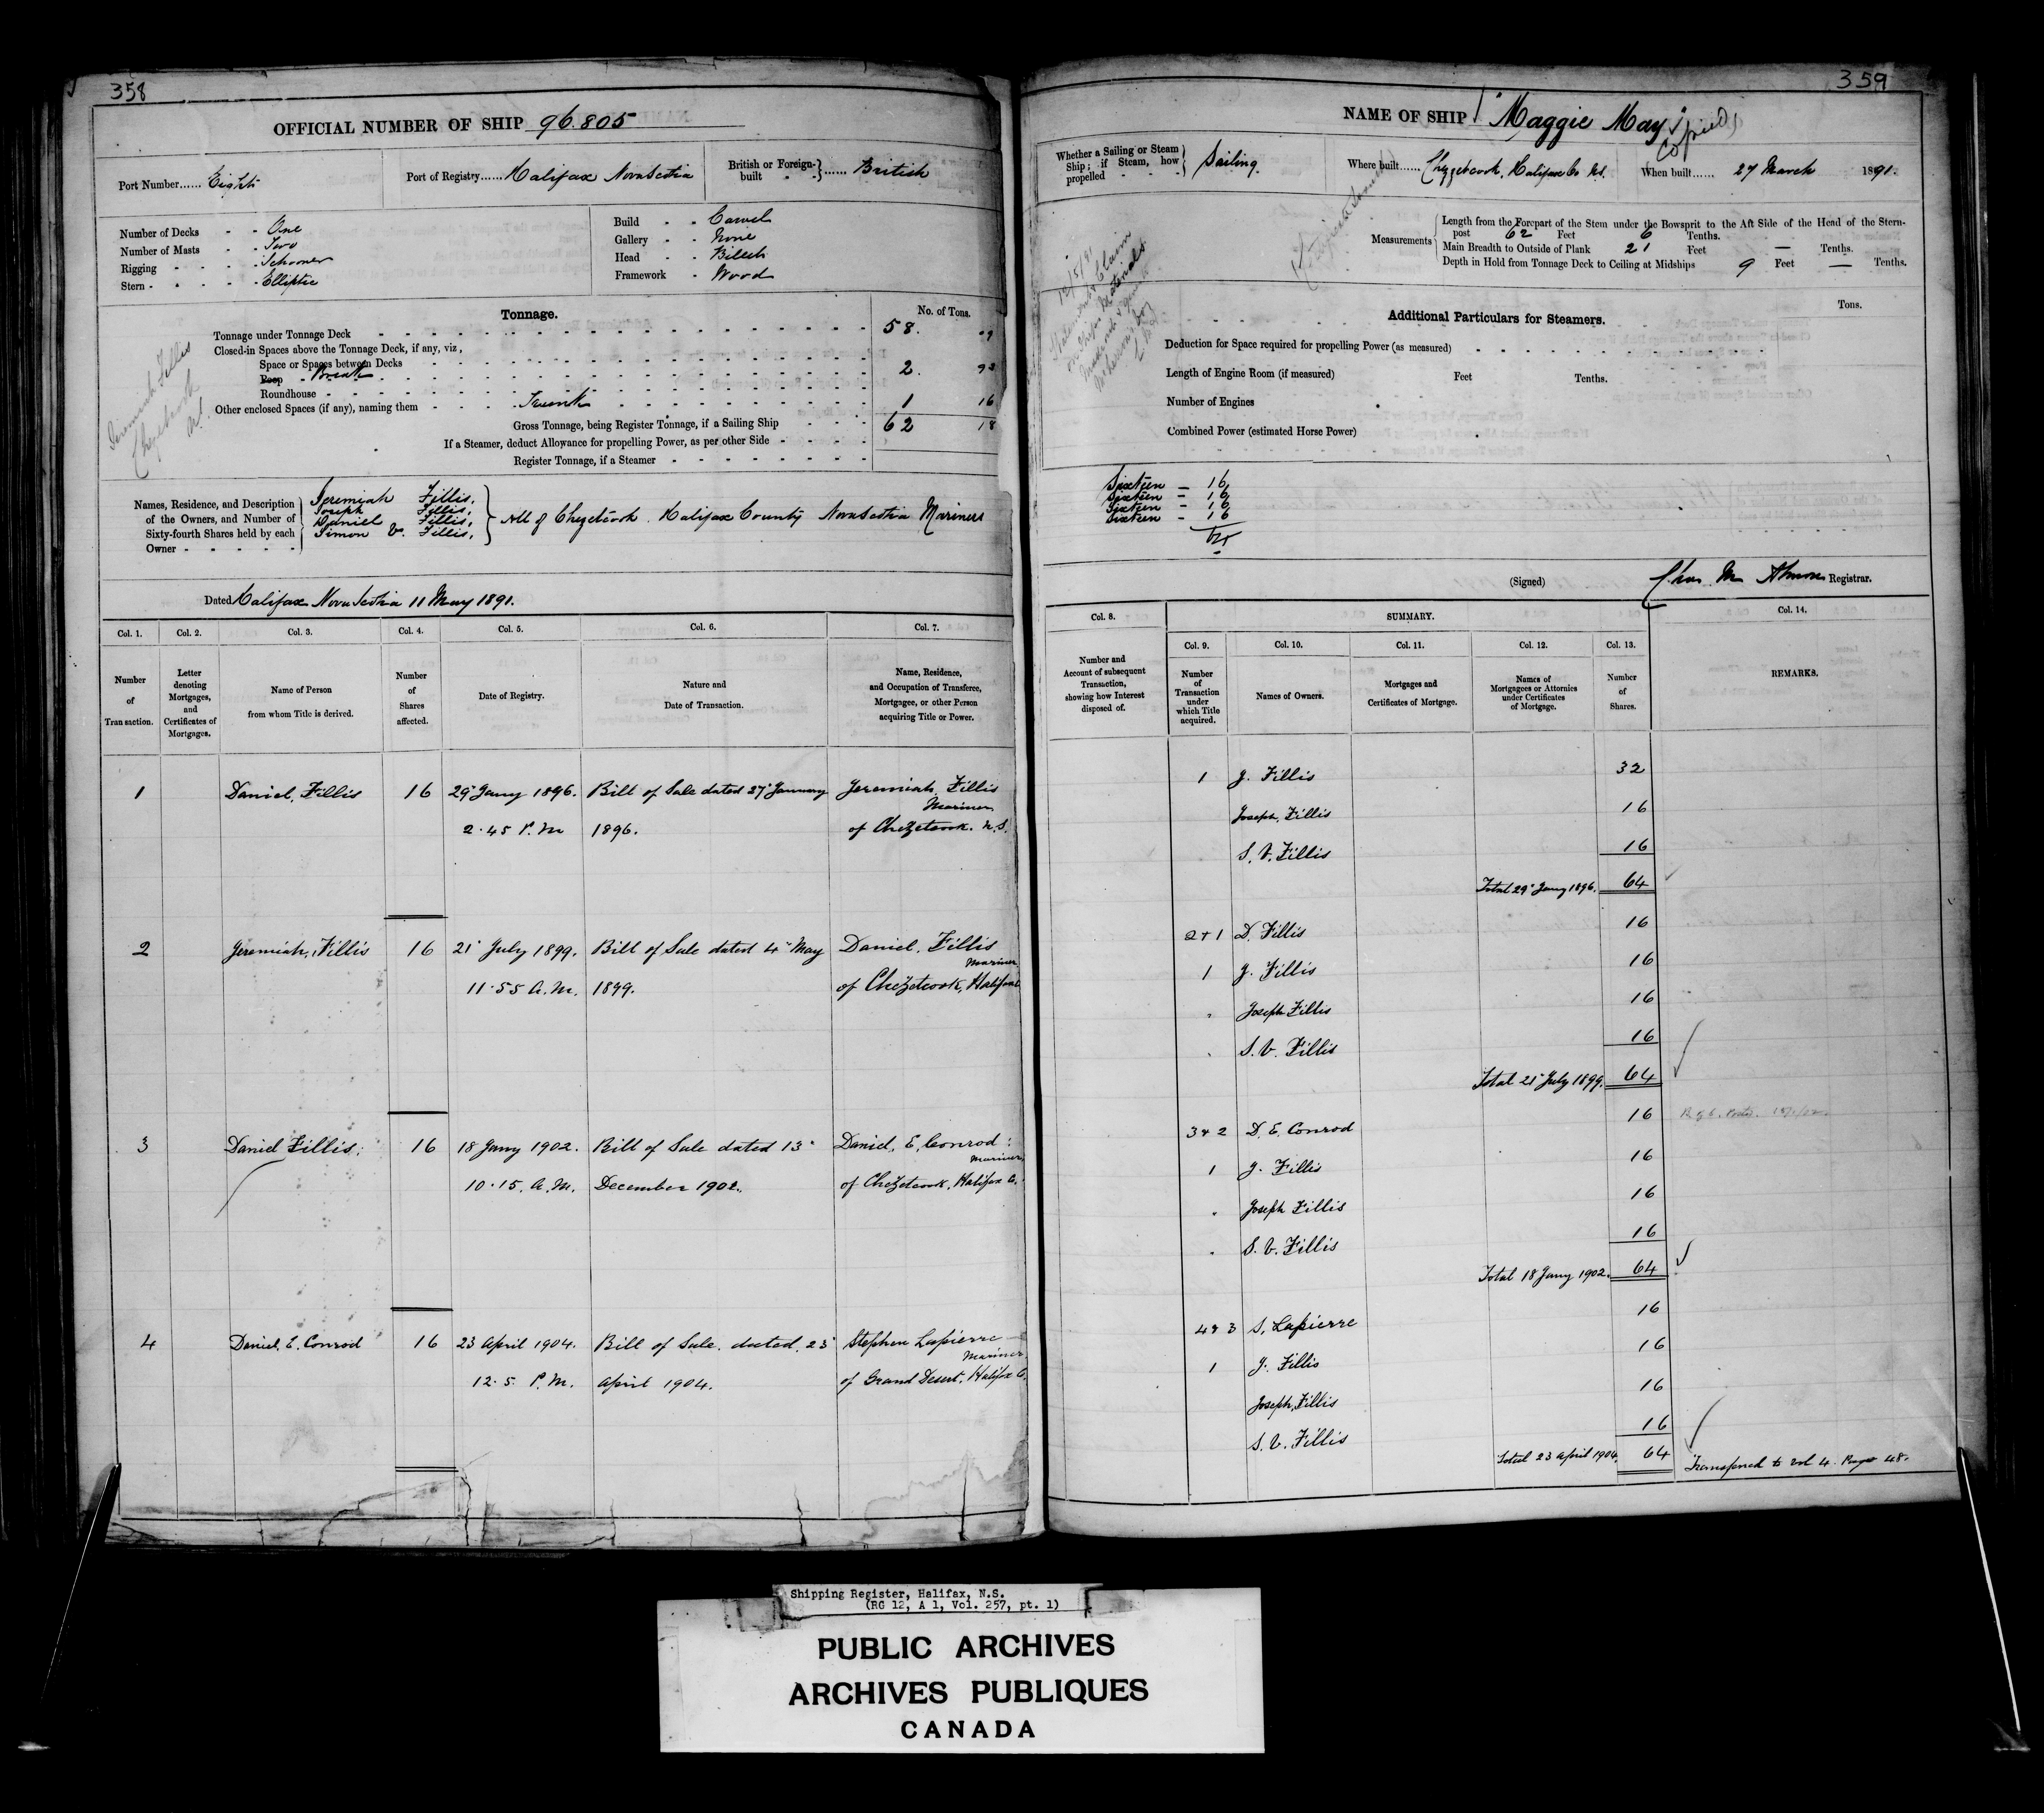 358
OFFICIAL NUMBER OF SHIP 96.805
Port Number...... Eight
Port of Registry...... Halifax Nova Scotia
British or Foreign-built - - } ...... British
Number of Decks - - One
Number of Masts - - Two
Rigging - - - - Schooner
Stern - - - - - Elliptic
Build - - Carvel
Gallery - - None
Head - - Billet
Framework - Wood
Tonnage.
No. of Tons.
Tonnage under Tonnage Deck 58. 09
Closed-in Spaces above the Tonnage Deck, if any, viz,
Space or Spaces between Decks
Poop - Break 2. 93
Roundhouse
Other enclosed Spaces (if any), naming them - - - - Trunk 1 16
Gross Tonnage, being Register Tonnage, if a Sailing Ship 62 18
If a Steamer, deduct Allowance for propelling Power, as per other Side
Register Tonnage, if a Steamer
Jeremiah Fillis
Chezetcook
N.S.
Names, Residence, and Description
of the Owners, and Number of
Sixty-fourth Shares held by each
Owner
Jeremiah Fillis,
Joseph Fillis,
Daniel Fillis,
Simon V. Fillis,
All of Chezetcook. Halifax County Nova Scotia Mariners
Dated Halifax Nova Scotia 11 May 1891.
Col. 1. Col. 2. Col. 3. Col. 4. Col. 5. Col. 6. Col. 7.
Number of Transaction.
Letter denoting Mortgages, and Certificates of Mortgages.
Name of Person from whom Title is derived.
Number of Shares affected.
Date of Registry.
Nature and Date of Transaction.
Name, Residence, and Occupation of Transferee, Mortgagee, or other Person acquiring Title or Power.
1 Daniel, Fillis 16 29" Jany 1896. Bill of Sale dated 27" January Jeremiah, Fillis
Mariner
2.45 P.M 1896. of Chezetcook. N.S.
2 Jeremiah, Fillis 16 21" July 1899. Bill of Sale dated 4" May Daniel, Fillis
Mariner
11.55 A.M. 1899. of Chezetcook, Halifax Co
3 Daniel Fillis, 16 18 Jany 1902. Bill of Sale dated 13" Daniel, E, Conrod
Mariner
10.15. A.M. December 1902. of Chezetcook, Halifax Co.
4 Daniel, E. Conrod 16 23 April 1904. Bill of Sale. dated. 23" Stephen Lapierre
Mariner
12.5. P.M. April 1904. of Grand Desert. Halifax Co.
359
NAME OF SHIP "Maggie May"
Copied
Whether a Sailing or Steam
Ship; if Steam, how
propelled - - - } Sailing.
Where built...... Chezzetcook, Halifax Co NS.
When built...... 27 March 1891.
Measurements
Length from the Forepart of the Stem under the Bowsprit to the Aft Side of the Head of the Stern-
post 62 Feet 6 Tenths.
Main Breadth to Outside of Plank 21 Feet — Tenths.
Depth in Hold from Tonnage Deck to Ceiling at Midships 9 Feet — Tenths.
Additional Particulars for Steamers.
Tons.
Deduction for Space required for propelling Power (as measured)
Length of Engine Room (if measured) Feet Tenths.
Number of Engines
Combined Power (estimated Horse Power)
Sixteen – 16
Sixteen – 16
Sixteen – 16
Sixteen – 16
64
(Signed) Chas M Almon Registrar.
Col. 8. SUMMARY. Col. 14.
Col. 9. Col. 10. Col. 11. Col. 12. Col. 13.
Number and Account of subsequent Transaction, showing how Interest disposed of.
Number of Transaction under which Title acquired.
Names of Owners.
Mortgages and Certificates of Mortgage.
Names of Mortgagees or Attornies under Certificates of Mortgage.
Number of Shares.
REMARKS.
1 J. Fillis 32
Joseph, Fillis 16
S. V. Fillis 16
Total 29" Jany 1896. 64
2+1 D. Fillis 16
1 J. Fillis 16
" Joseph Fillis 16
" S. V. Fillis 16
Total 21" July 1899. 64
3+2 D. E. Conrod 16
1 J. Fillis 16
" Joseph Fillis 16
" S. V. Fillis 16
Total 18 Jany 1902. 64
4+3 S. Lapierre 16
1 J. Fillis 16
Joseph, Fillis 16
S. V. Fillis 16
Total 23 April 1904. 64
Transferred to vol 4. Page 48.
Shipping Register, Halifax, N.S.
(RG 12, A 1, Vol. 257, pt. 1)
PUBLIC ARCHIVES
ARCHIVES PUBLIQUES
CANADA